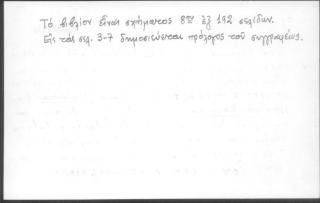 Τό βιβλίον εἶναι σχήματος 8ον ἐξ 192 σελίδων.
Εἰς τάς σελ. 3-7 δημοσιεύεται πρόλογος τοῦ συγγραφέως.